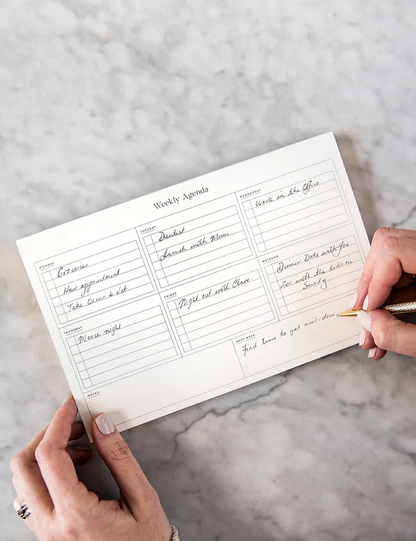 Weekly Agenda
MONDAY
Groceries
Hair appointment
Take Oscar to Vet
TUESDAY
Dentist
Lunch with Mum
WEDNESDAY
Work in the Office
THURSDAY
Movie night
FRIDAY
Night out with
WEEKEND
Dinner Date with Joe
Zoo with the kids on
Sunday
NOTES
NEXT WEEK
Find time to get nails done